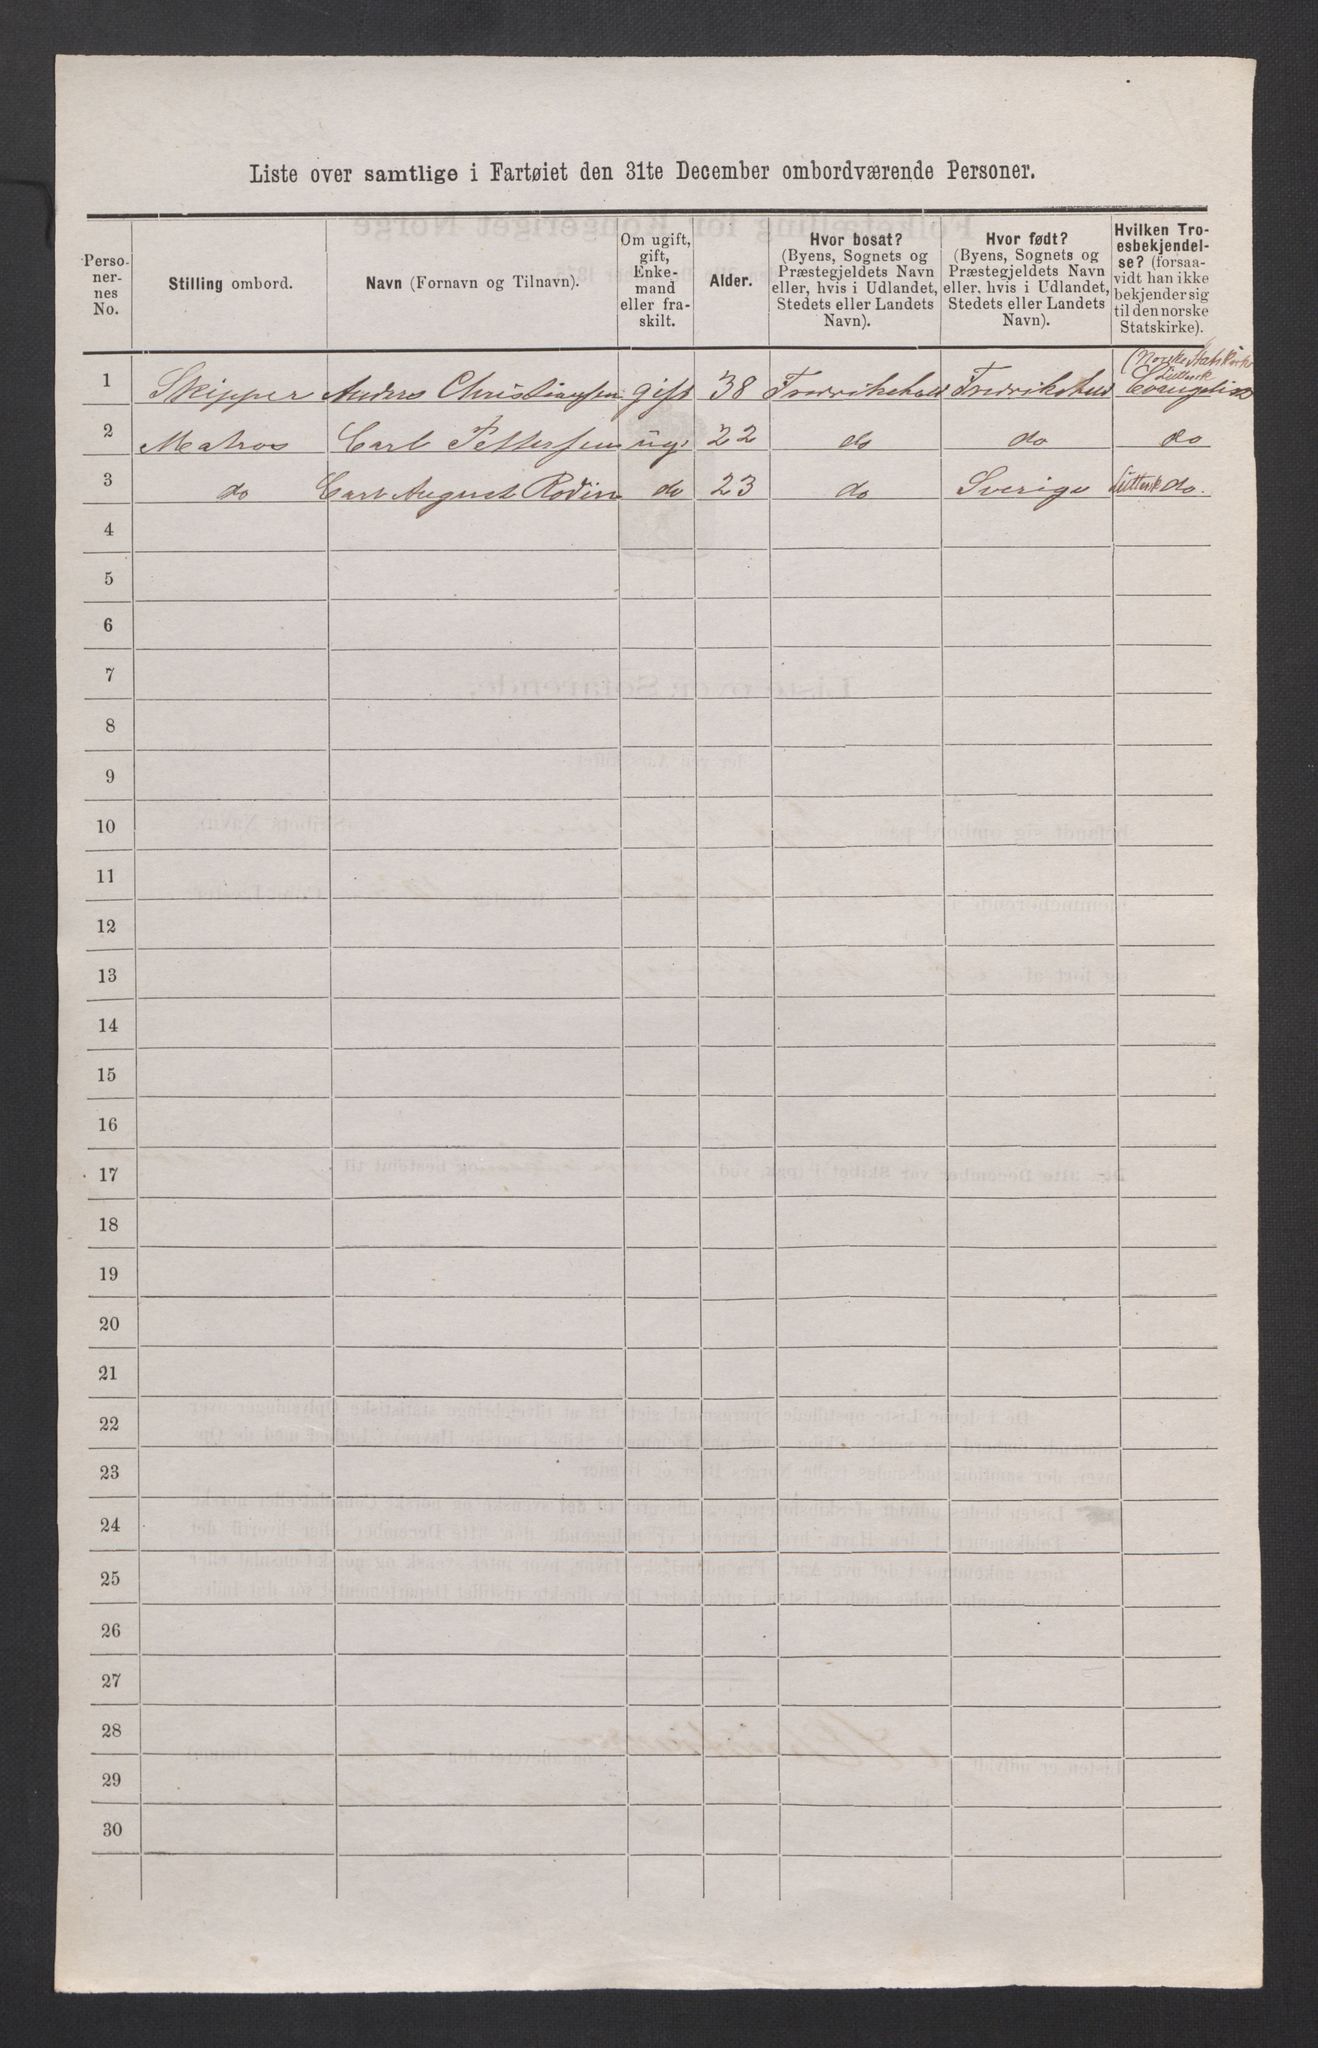 Liste over samtlige i Fartøiet den 31te December ombordværende Personer.
Perso-
ner-
nes
No.
Stilling ombord.
Navn (Fornavn og Tilnavn).
Om ugift,
gift,
Enke-
mand
eller fra-
skilt.
Alder.
Hvor bosat?
(Byens, Sognets og
Præstegjeldets Navn
eller, hvis i Udlandet,
Stedets eller Landets
Navn).
Hvor født?
(Byens, Sognets og
Præstegjeldets Navn
eller, hvis i Udlandet,
Stedets eller Landets
Navn).
Hvilken Tro-
esbekjendel-
se? (forsaa-
vidt han ikke
bekjender sig
til den norske
Statskirke).
(Norske Statskirke
Luttersk
1 Skipper Anders Christiansen gift 38 Fredrikshald Fredrikshald Evangelisk
2 Matros Carl Pettersen ug. 22 do do do
3 do Carl August Rodin do 23 do Sverige Luttersk do.
4
5
6
7
8
9
10
11
12
13
14
15
16
17
18
19
20
21
22
23
24
25
26
27
28
29
30